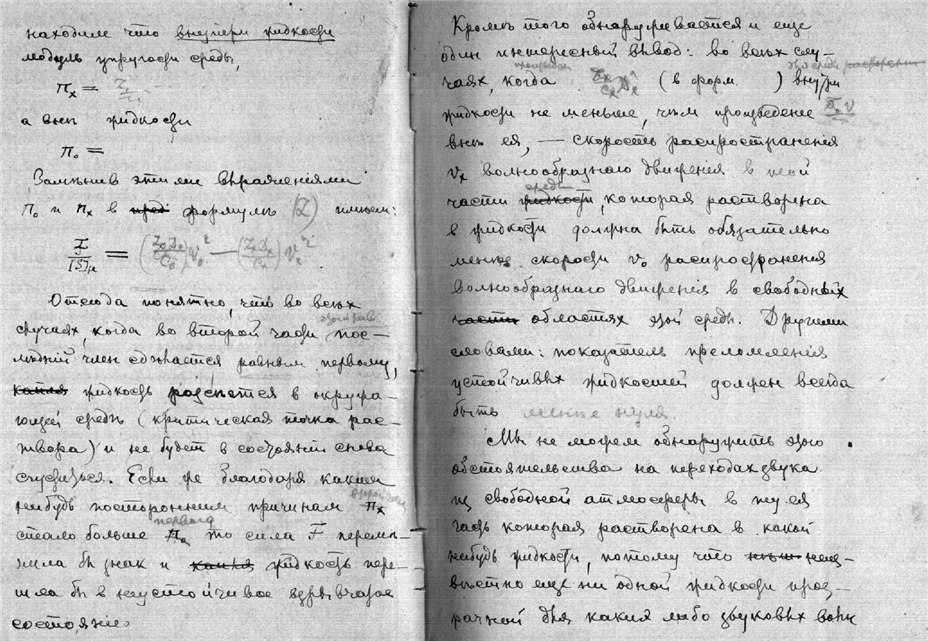 находимъ что внутри жидкости
модуль упругости среды,
π_x =
а внѣ жидкости
π_0 =
Замѣнивъ этими выраженіями
π_0 и π_x въ формулѣ (2) имѣемъ:
F/[S]μ = ( ) v_0^2 — ( ) v_x^2
Отсюда понятно, что во всѣхъ
случаяхъ, когда во второй части пос-
лѣдній членъ сдѣлается равнымъ первому,
капля жидкость разсѣется въ окружа-
ющей средѣ (критическая точка рас-
твора) и не будетъ въ состояніи снова
сгуститься. Если же благодаря какимъ
нибудь постороннимъ причинамъ π_x
первого
стало больше π_0 то сила F перемѣ-
нила бы знакъ и капля жидкость пере-
шла бы въ неустойчивое взрывчатое
состояніе
Кромѣ того обнаруживается и еще
одинъ интересный выводъ: во всѣхъ слу-
чаяхъ, когда (въ форм ) внутри
жидкости не меньше, чѣмъ произведеніе
внѣ ея, — скорость распространенія
v_x волнообразнаго движенія въ той
среды
части жидкости, которая растворена
въ жидкости должна быть обязательно
менѣе скорости v_0 распространенія
волнообразнаго движенія въ свободныхъ
части областяхъ этой среды. Другими
словами: показатель преломленія
устойчивыхъ жидкостей долженъ всегда
быть менѣе нуля.
Мы не можемъ обнаружить этого
обстоятельства на переходахъ звука
изъ свободной атмосферы въ ту ея
часть которая растворена въ какой
нибудь жидкости, потому что неиз-
вѣстно еще ни одной жидкости проз-
рачной для какихъ либо звуковыхъ волнъ